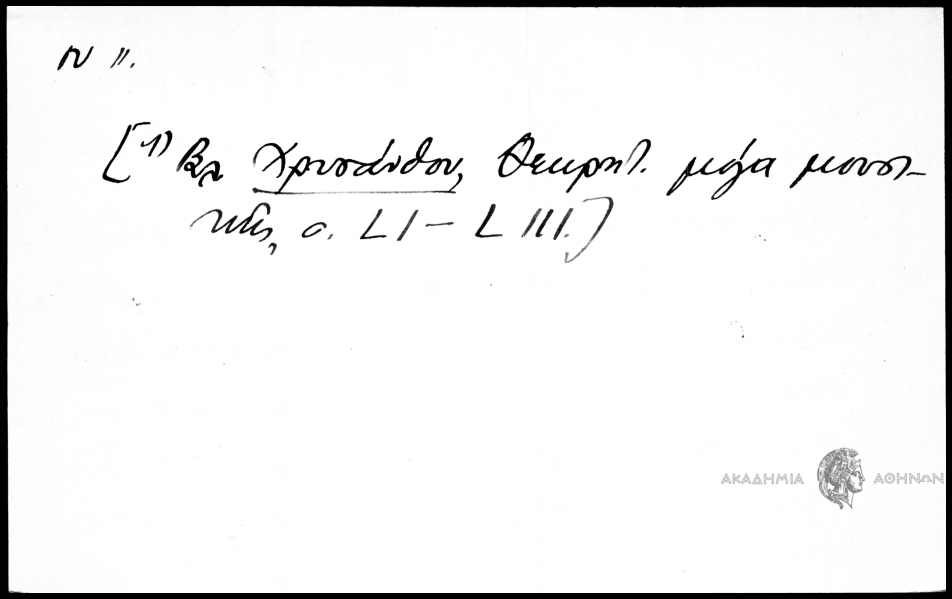 [¹) Βλ Χρυσάνθου, Θεωρητ. μέγα μουσι-
κῆς, σ. LI – LIII.]
ΑΚΑΔΗΜΙΑ ΑΘΗΝΩΝ